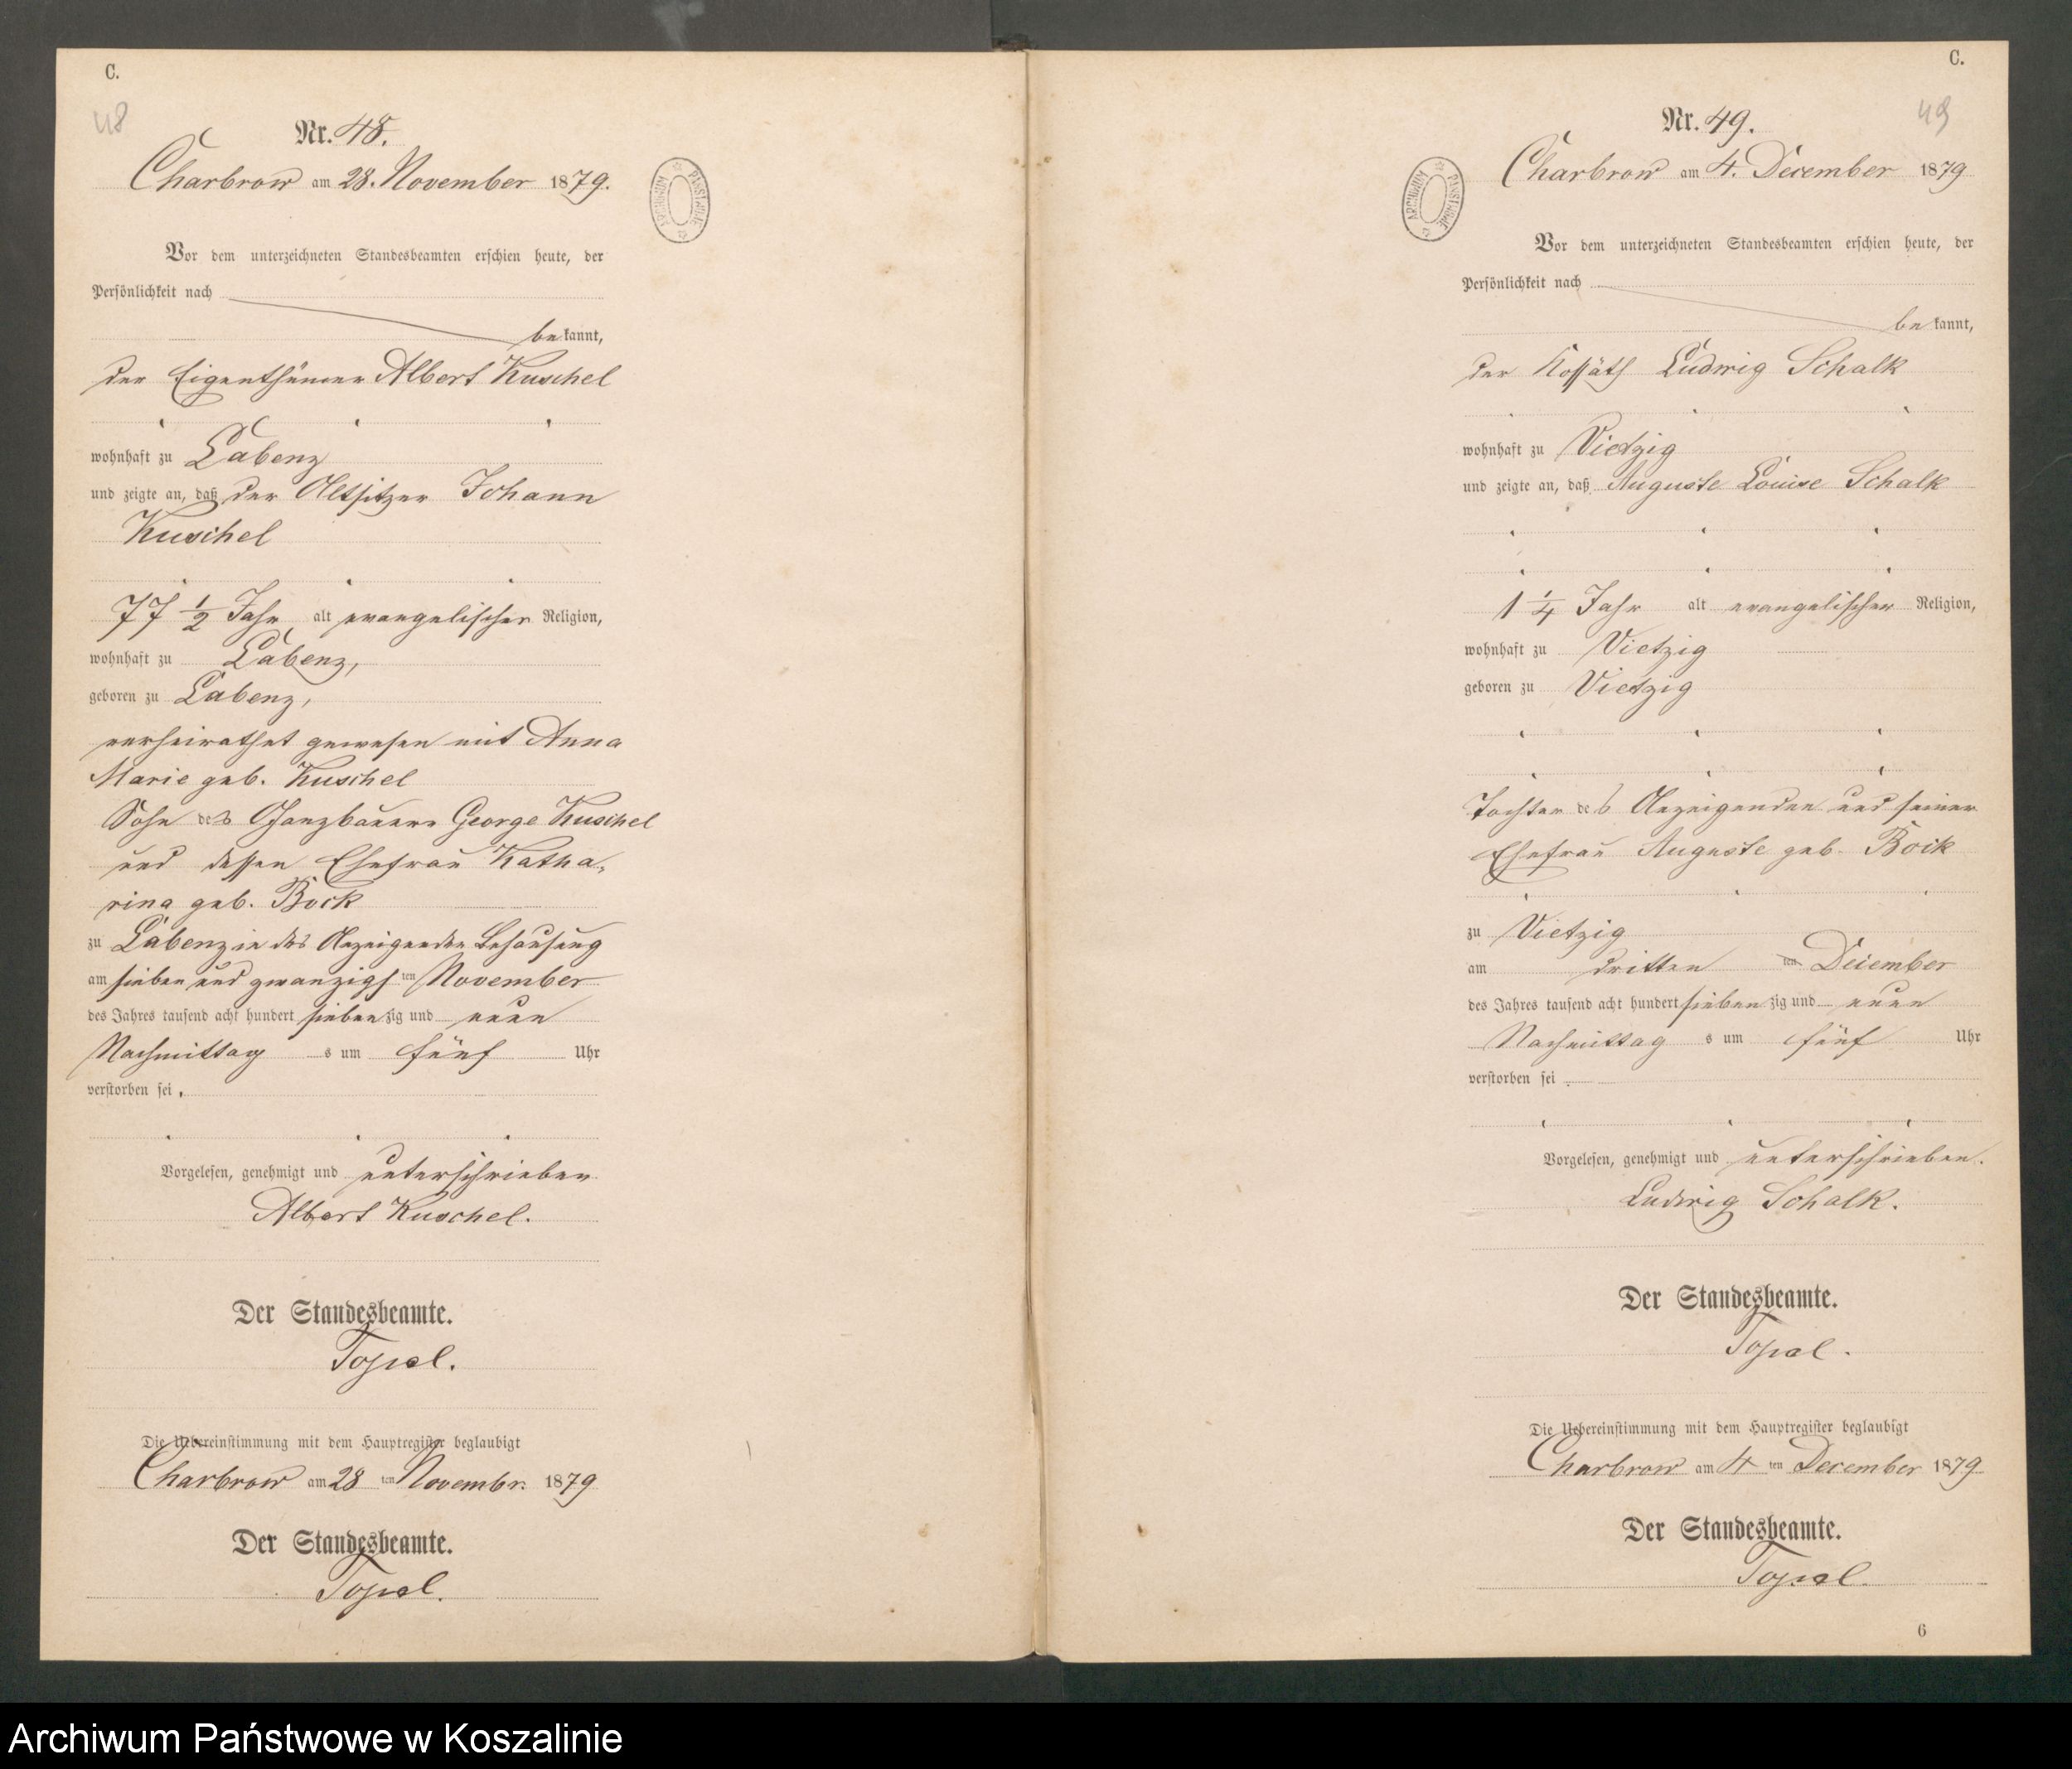 C.
48
Nr. 48.
Charbrow am 28. November 1879.
ARCHIWUM PAŃSTWOWE
Vor dem unterzeichneten Standesbeamten erschien heute, der
Persönlichkeit nach
bekannt,
der Eigenthümer Albert Kuschel
wohnhaft zu Labenz
und zeigte an, daß der Altsitzer Johann
Kuschel
77 1/2 Jahr alt evangelischer Religion,
wohnhaft zu Labenz,
geboren zu Labenz,
verheirathet gewesen mit Anna
Marie geb. Kuschel
Sohn des Ganzbauern George Kuschel
und dessen Ehefrau Katha-
rina geb. Bock
zu Labenz in des Anzeigenden Behausung
am sieben und zwanzigsten November
des Jahres tausend acht hundert siebenzig und neun
Nachmittags um fünf Uhr
verstorben sei.
Vorgelesen, genehmigt und unterschrieben
Albert Kuschel.
Der Standesbeamte.
Topel.
Die Uebereinstimmung mit dem Hauptregister beglaubigt
Charbrow am 28 ten Novembr. 1879
Der Standesbeamte.
Topel.
C.
49
Nr. 49.
Charbrow am 4. December 1879
ARCHIWUM PAŃSTWOWE
Vor dem unterzeichneten Standesbeamten erschien heute, der
Persönlichkeit nach
bekannt,
der Kossäth Ludwig Schalk
wohnhaft zu Vietzig
und zeigte an, daß Auguste Louise Schalk
1 1/4 Jahr alt evangelischer Religion,
wohnhaft zu Vietzig
geboren zu Vietzig
Tochter des Anzeigenden und seiner
Ehefrau Auguste geb. Bock
zu Vietzig
am dritten ten December
des Jahres tausend acht hundert siebenzig und neun
Nachmittags um fünf Uhr
verstorben sei
Vorgelesen, genehmigt und unterschrieben.
Ludwig Schalk.
Der Standesbeamte.
Topel.
Die Uebereinstimmung mit dem Hauptregister beglaubigt
Charbrow am 4 ten December 1879
Der Standesbeamte.
Topel.
6
Archiwum Państwowe w Koszalinie